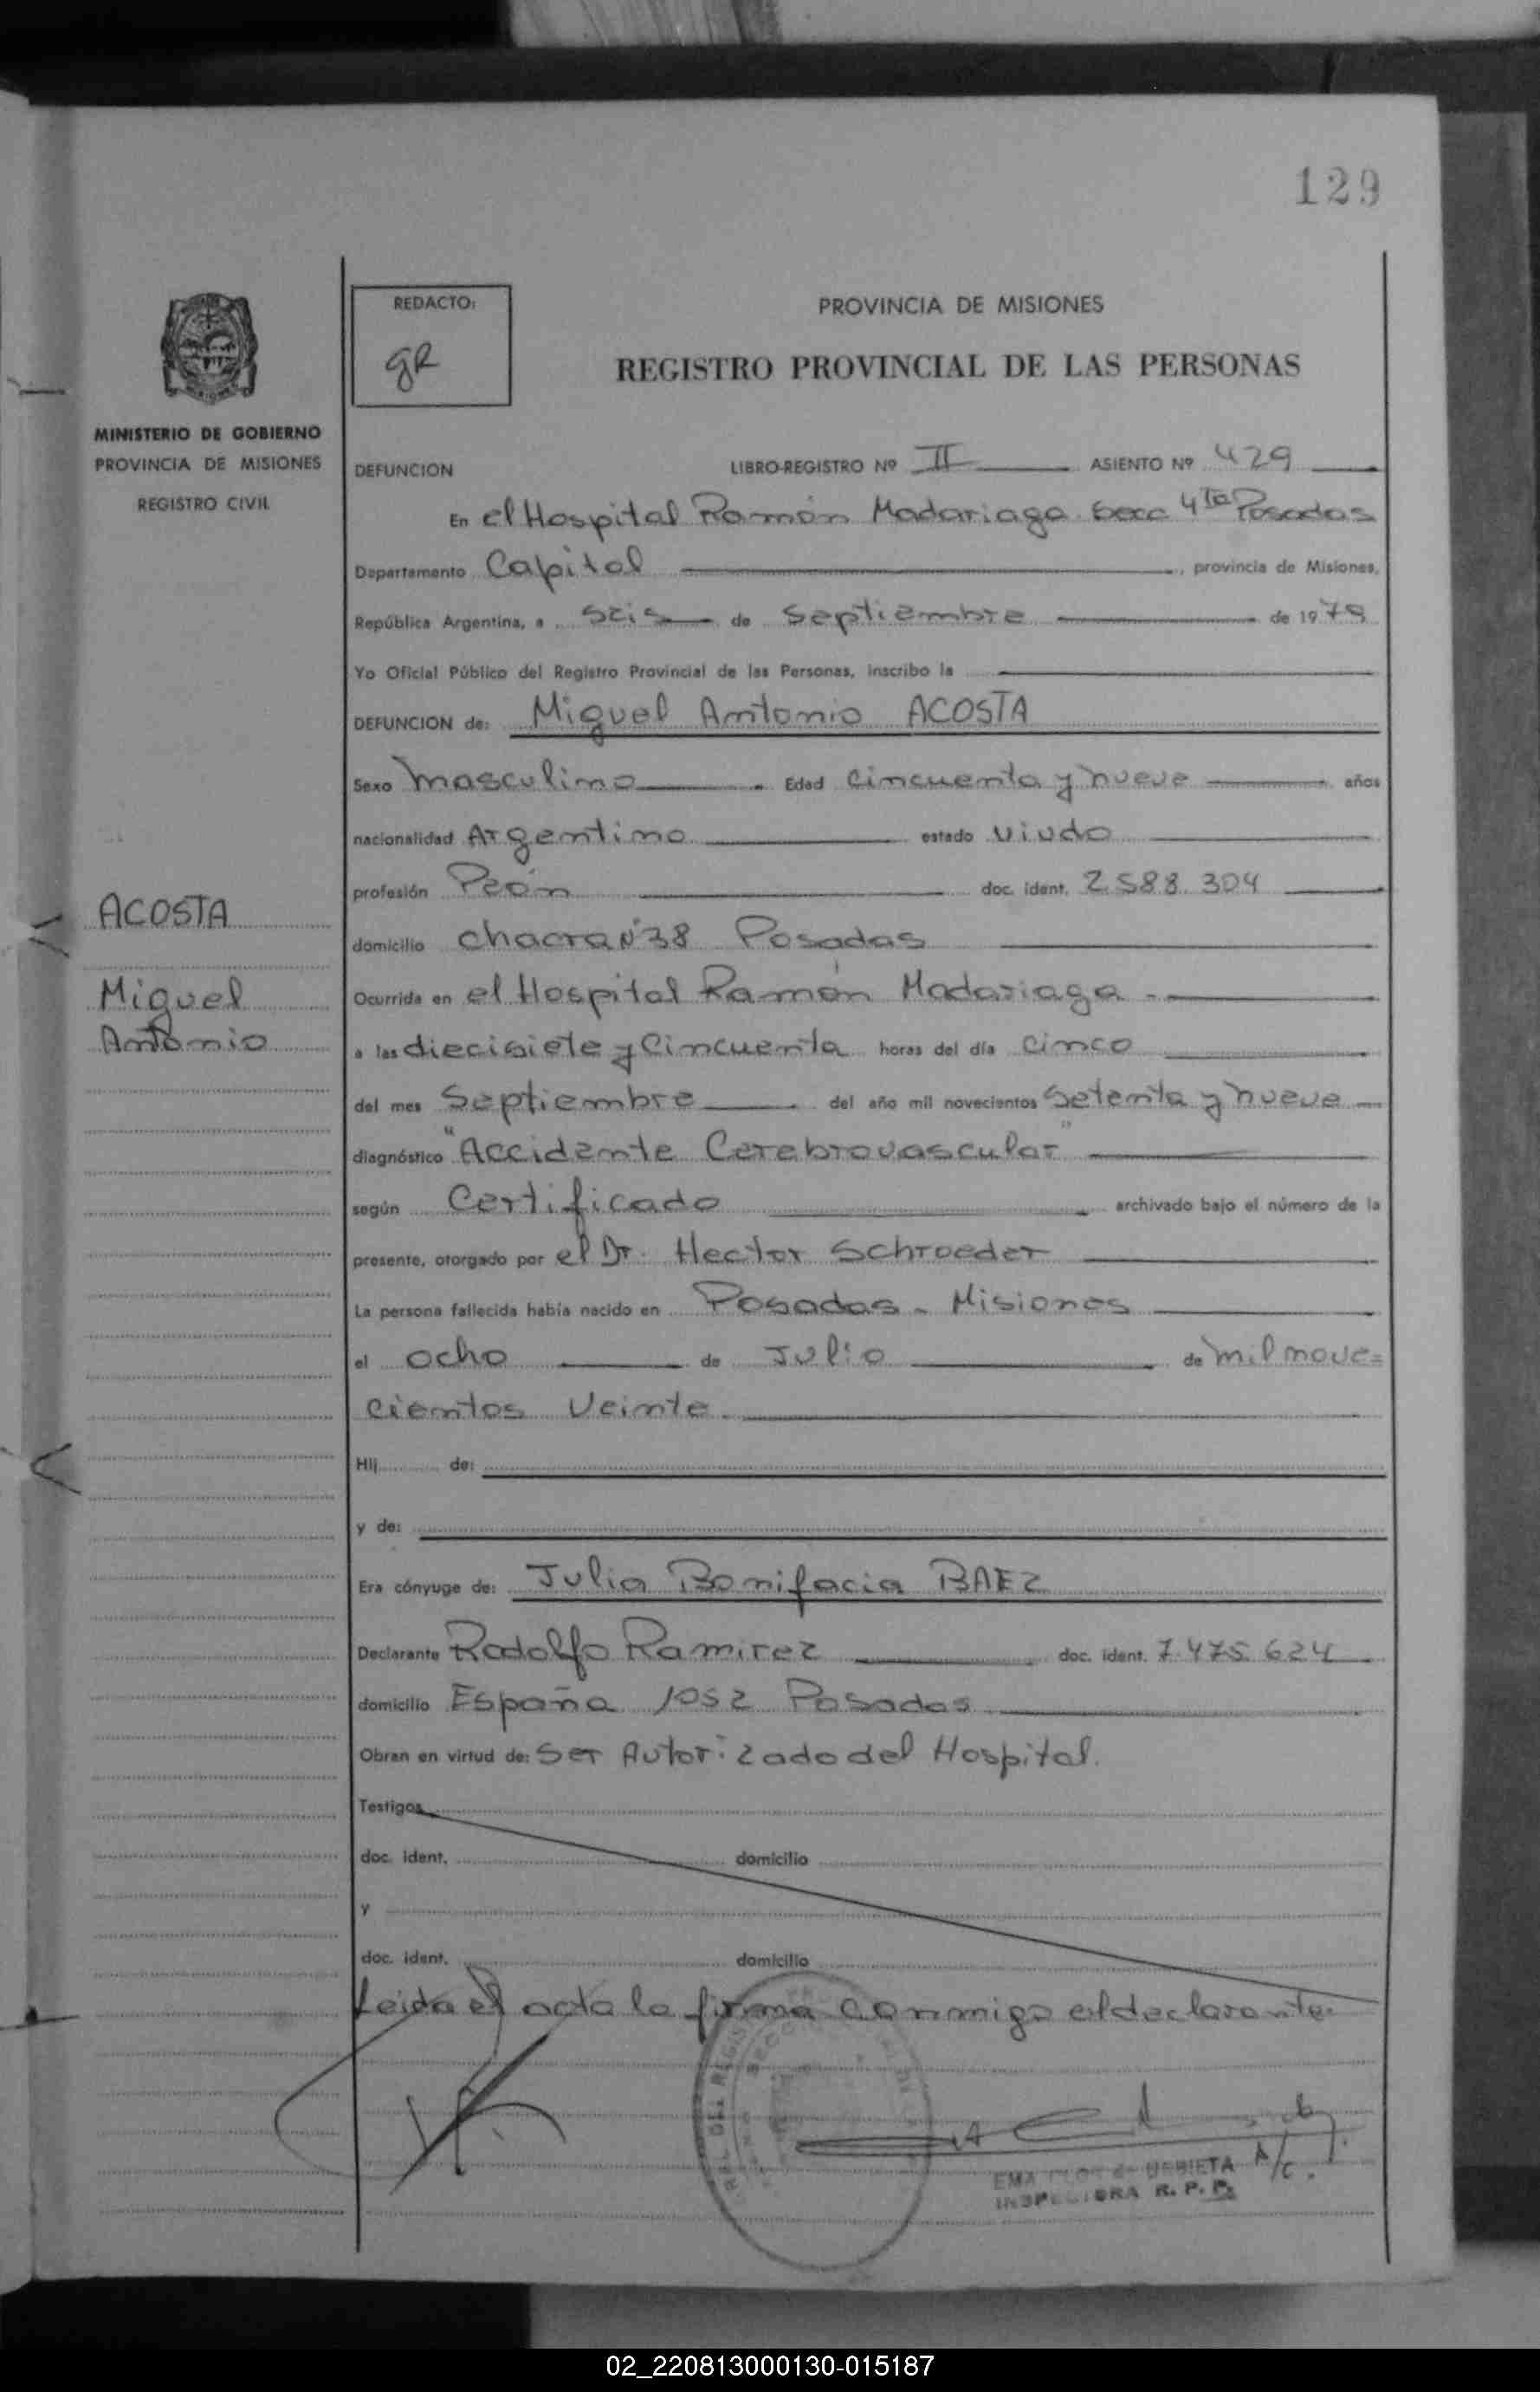 129
REDACTO:
gR
PROVINCIA DE MISIONES
REGISTRO PROVINCIAL DE LAS PERSONAS
MINISTERIO DE GOBIERNO
PROVINCIA DE MISIONES
REGISTRO CIVIL
DEFUNCION LIBRO-REGISTRO Nº II ASIENTO Nº 429
En el Hospital Ramón Madariaga Secc 4ta Posadas
Departamento Capital, provincia de Misiones,
República Argentina, a seis de Septiembre de 1979
Yo Oficial Público del Registro Provincial de las Personas, inscribo la
DEFUNCION de: Miguel Antonio ACOSTA
Sexo masculino Edad cincuenta y nueve años
nacionalidad Argentino estado viudo
profesión Peón doc. ident. 2.588.304
ACOSTA
Miguel
Antonio
domicilio chacra Nº38 Posadas
Ocurrida en el Hospital Ramón Madariaga -
a las diecisiete y cincuenta horas del día cinco
del mes Septiembre del año mil novecientos setenta y nueve
diagnóstico "Accidente Cerebrovascular"
según Certificado archivado bajo el número de la
presente, otorgado por el Dr. Hector Schroeder
La persona fallecida había nacido en Posadas - Misiones
el ocho de Julio de mil nove=
cientos veinte
Hij de:
y de:
Era cónyuge de: Julia Bonifacia BAEZ
Declarante Rodolfo Ramirez doc. ident. 7.475.624
domicilio España 1052 Posadas
Obran en virtud de: Ser Autorizado del Hospital.
Testigos
doc. ident. domicilio
y
doc. ident. domicilio
Leida el acta la firma conmigo el declarante.
EMA URBIETA A/C.
INSPECTORA R. P. P.
02_220813000130-015187